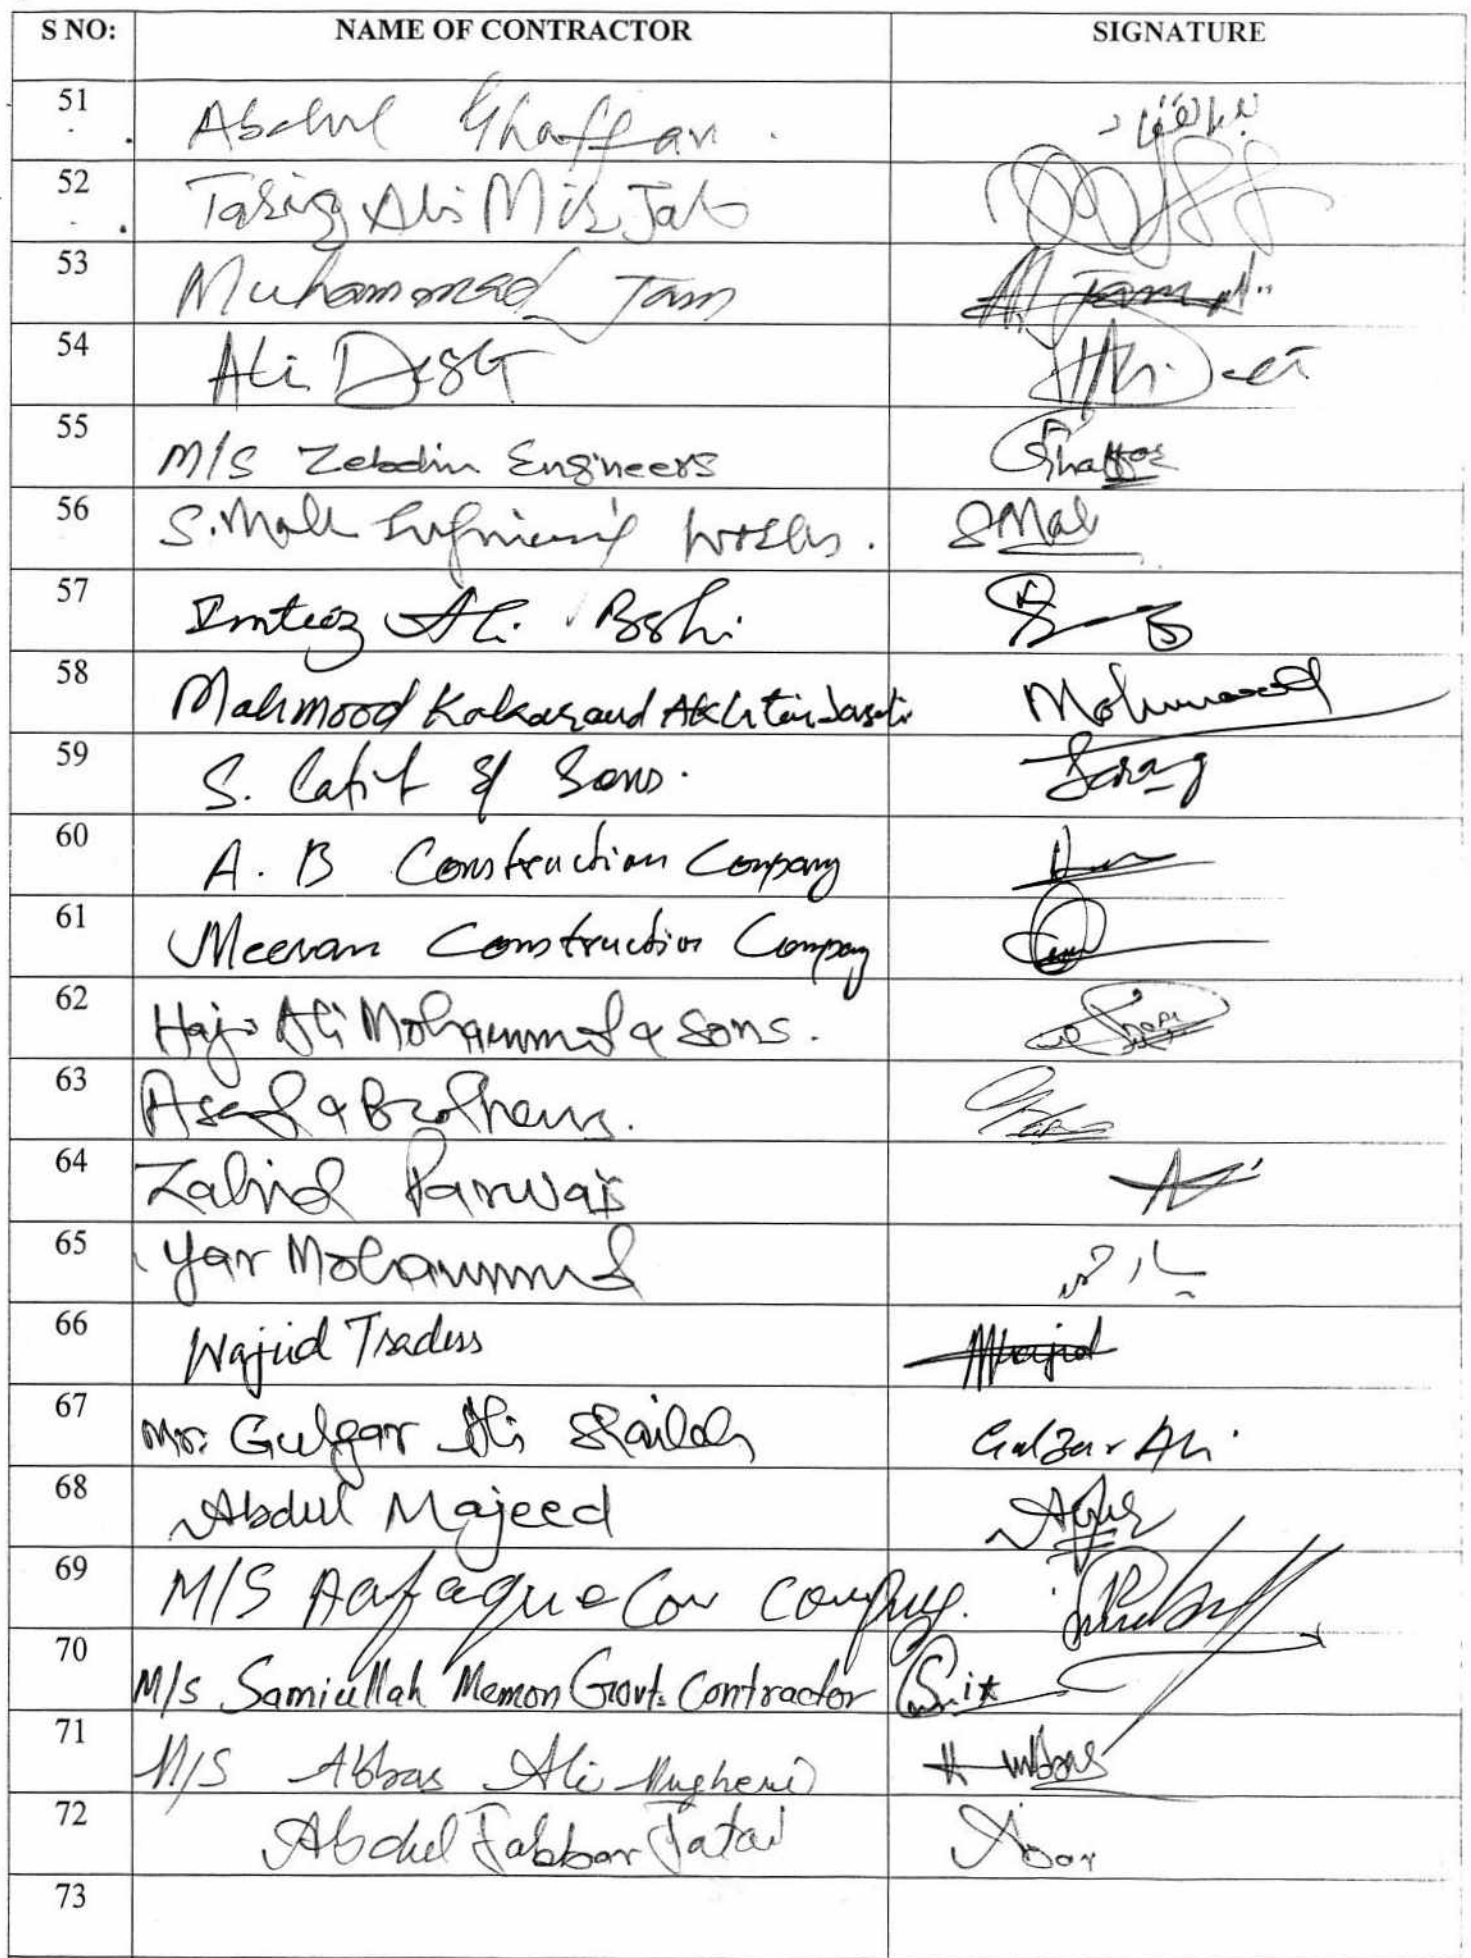 S NO: NAME OF CONTRACTOR SIGNATURE
51 Abdul Ghaffar . عبدالغفار
52 Tariq Ali Mir Jat
53 Muhammad Jam M. Jam
54 Ali Dost Ali Dost
55 M/S Zebdin Engineers Ghaffar
56 S. Mall Engineering Works . S Mal
57 Imtiaz Ali
58 Mahmood Kakar and Akhtar Mahmood
59 S. Latif & Sons.
60 A. B Construction Company
61 Meeran Construction Company
62 Haji Ali Mohammad & Sons .
63 Asad & Brothers.
64 Zahid Parwaiz
65 Yar Mohammad یار محمد
66 Wajid Traders Wajid
67 Mr. Gulzar Ali Shaikh Gulzar Ali
68 Abdul Majeed
69 M/S Aafaque Con Company.
70 M/s Samiullah Memon Govt. Contractor
71 M/S Abbas Ali Mugheri
72 Abdul Jabbar Jatoi
73